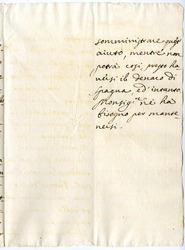 somministrare quest
aiuto, mentre non
potrà così presto ha
uersi il denaro di
spagna, ed intanto
Monsig.r ne ha
bisogno per mante
nersi.